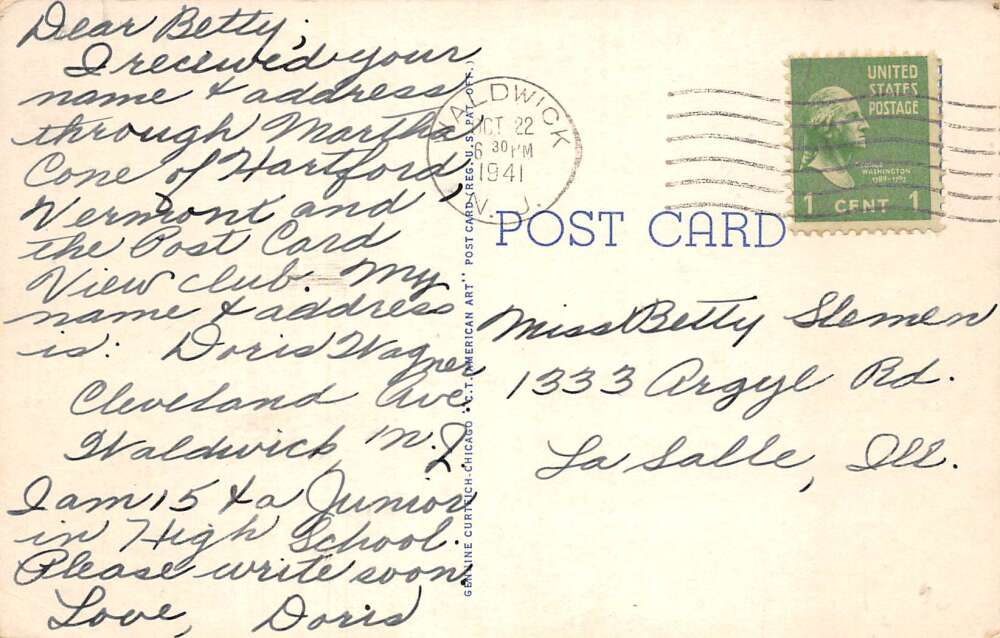 Dear Betty,
I received your
name & address
through Martha
Cone of Hartford,
Vermont and
the Post Card
View club. My
name & address
is: Doris Wagner
Cleveland Ave
Waldwick N.J.
I am 15 & a Junior
in High School.
Please write soon.
Love, Doris
GENUINE CURTEICH-CHICAGO "C.T. AMERICAN ART" POST CARD (REG. U.S. PAT. OFF.)
WALDWICK
OCT 22
6 30 PM
1941
N. J.
POST CARD
UNITED
STATES
POSTAGE
WASHINGTON
1789-1797
1 CENT 1
Miss Betty Slemen
1333 Argyl Rd.
La Salle, Ill.